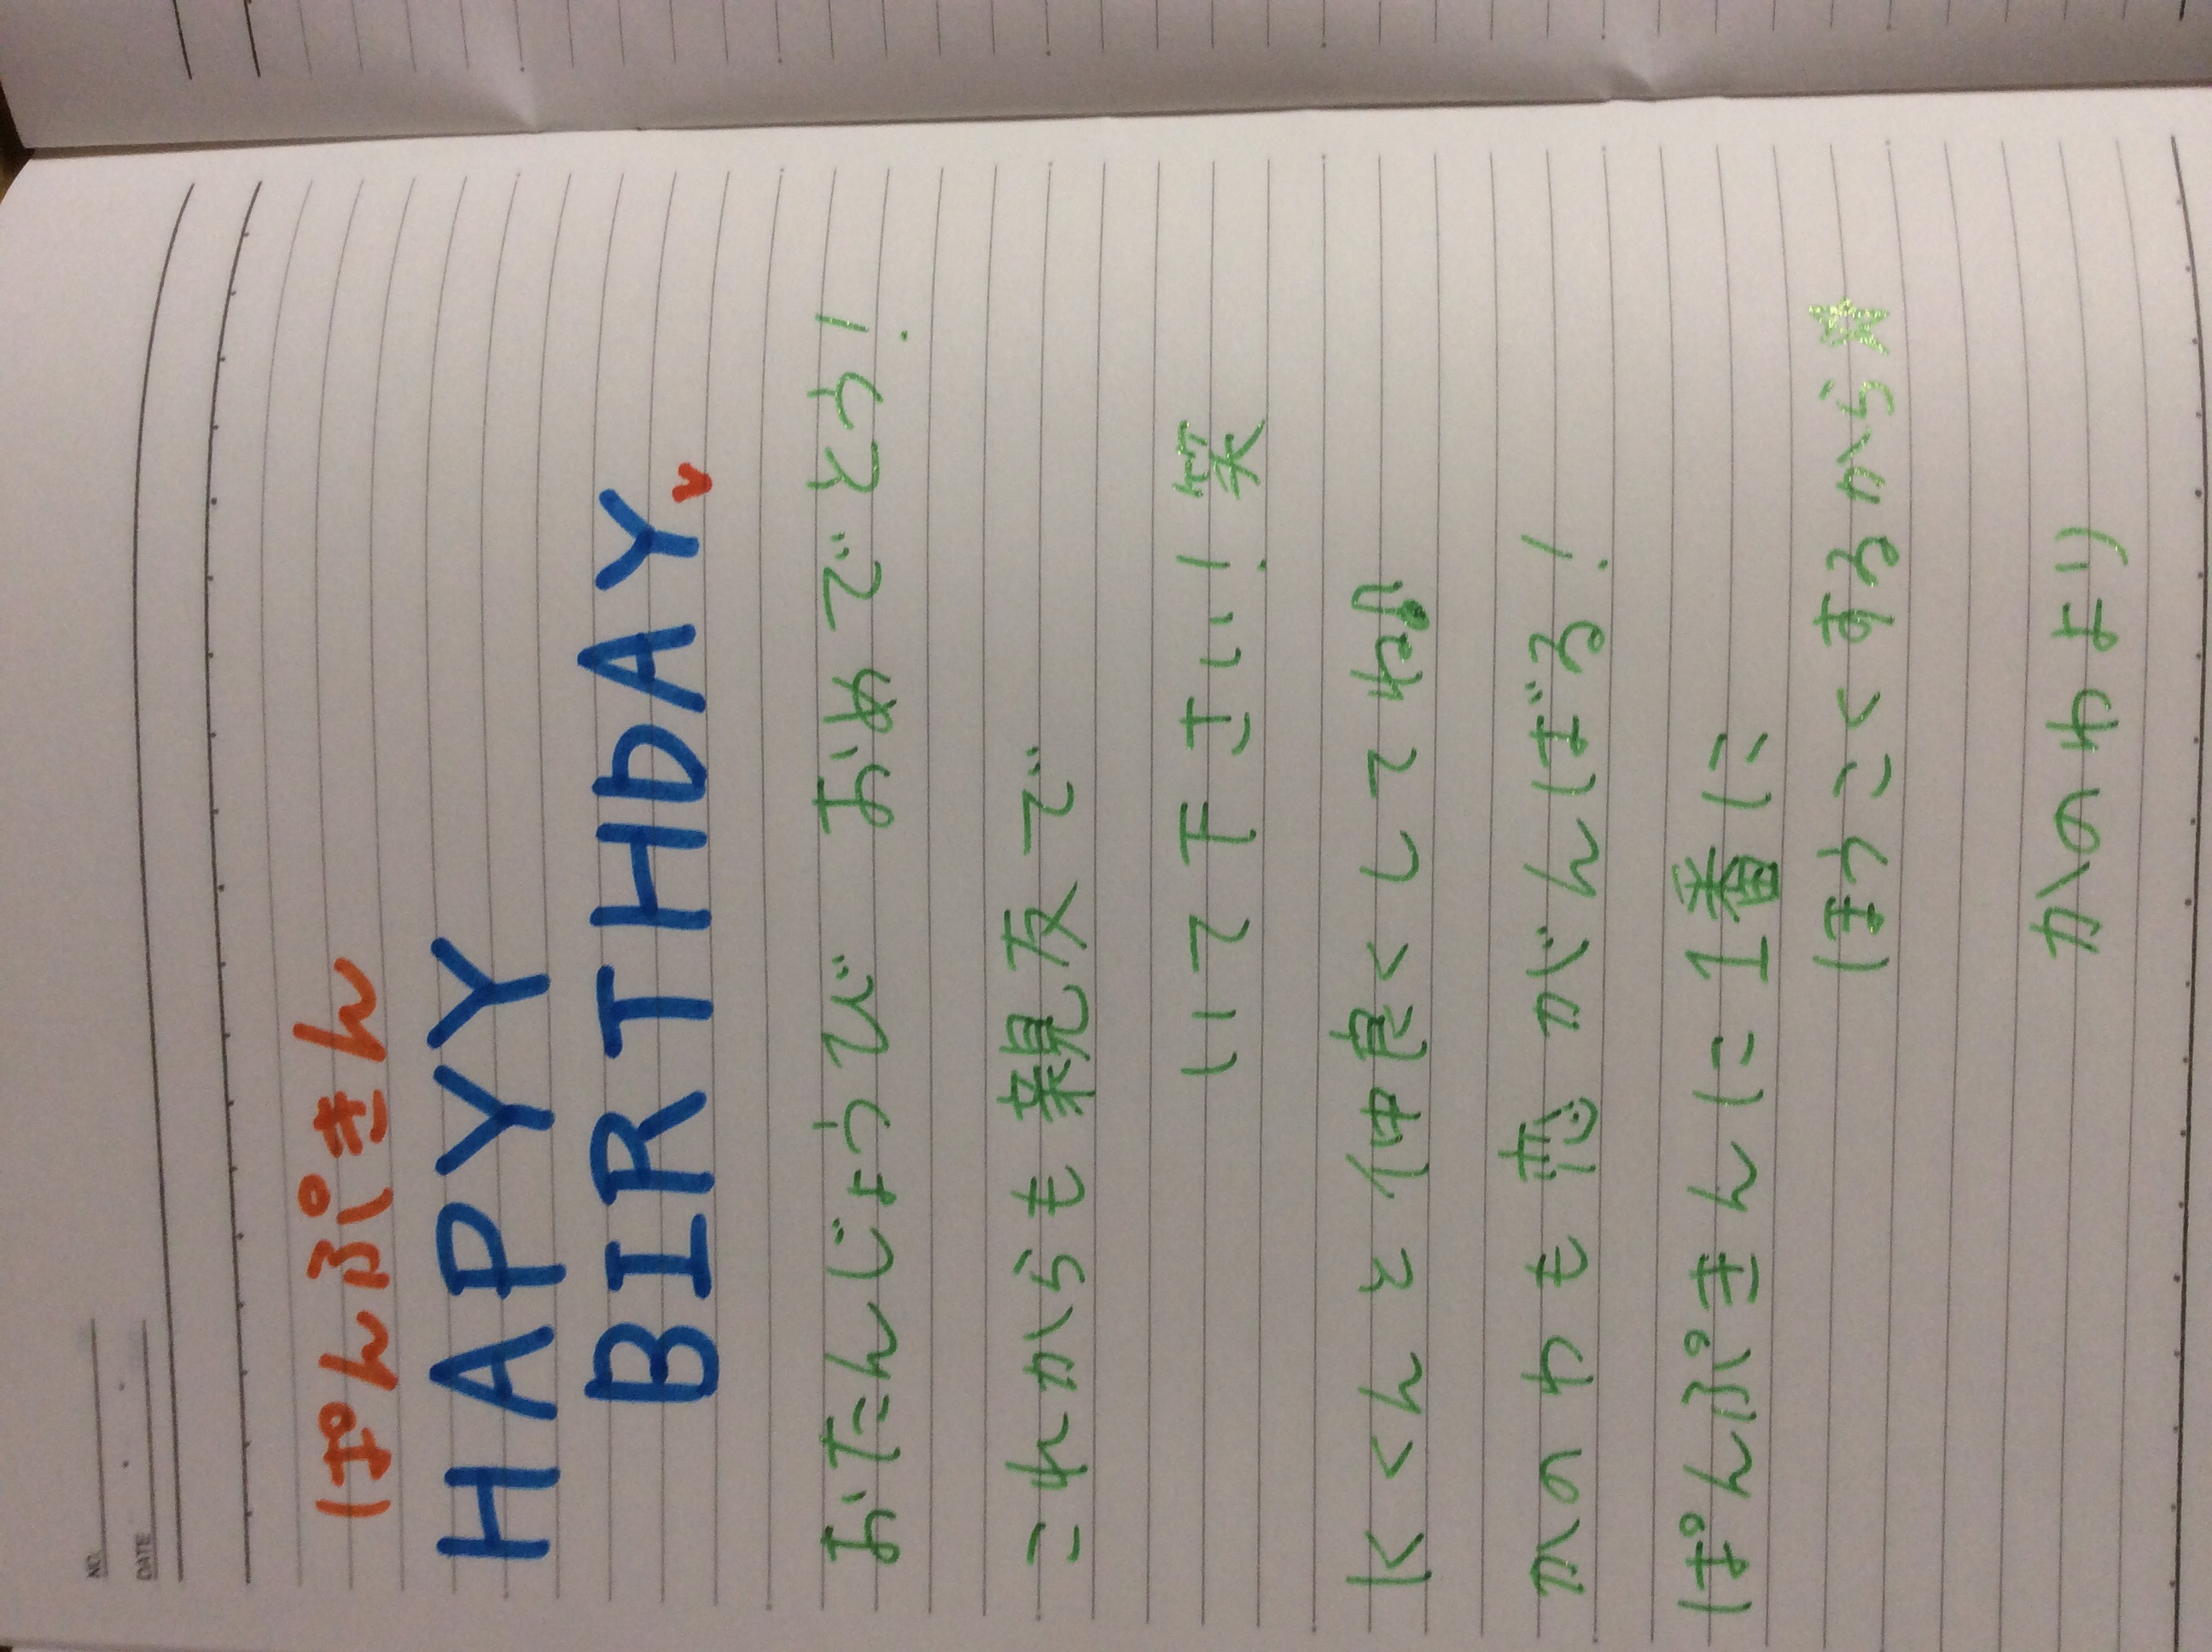 NO.
DATE
ぱんぷきん
HAPYY
BIRTHDAY
おたんじょうび おめでとう!
これからも親友で
いて下さい!笑
Kくんと仲良くしてね
かのわも恋がんばる!
ぱんぷきんに1番に
ほうこくするから☆
かのわより